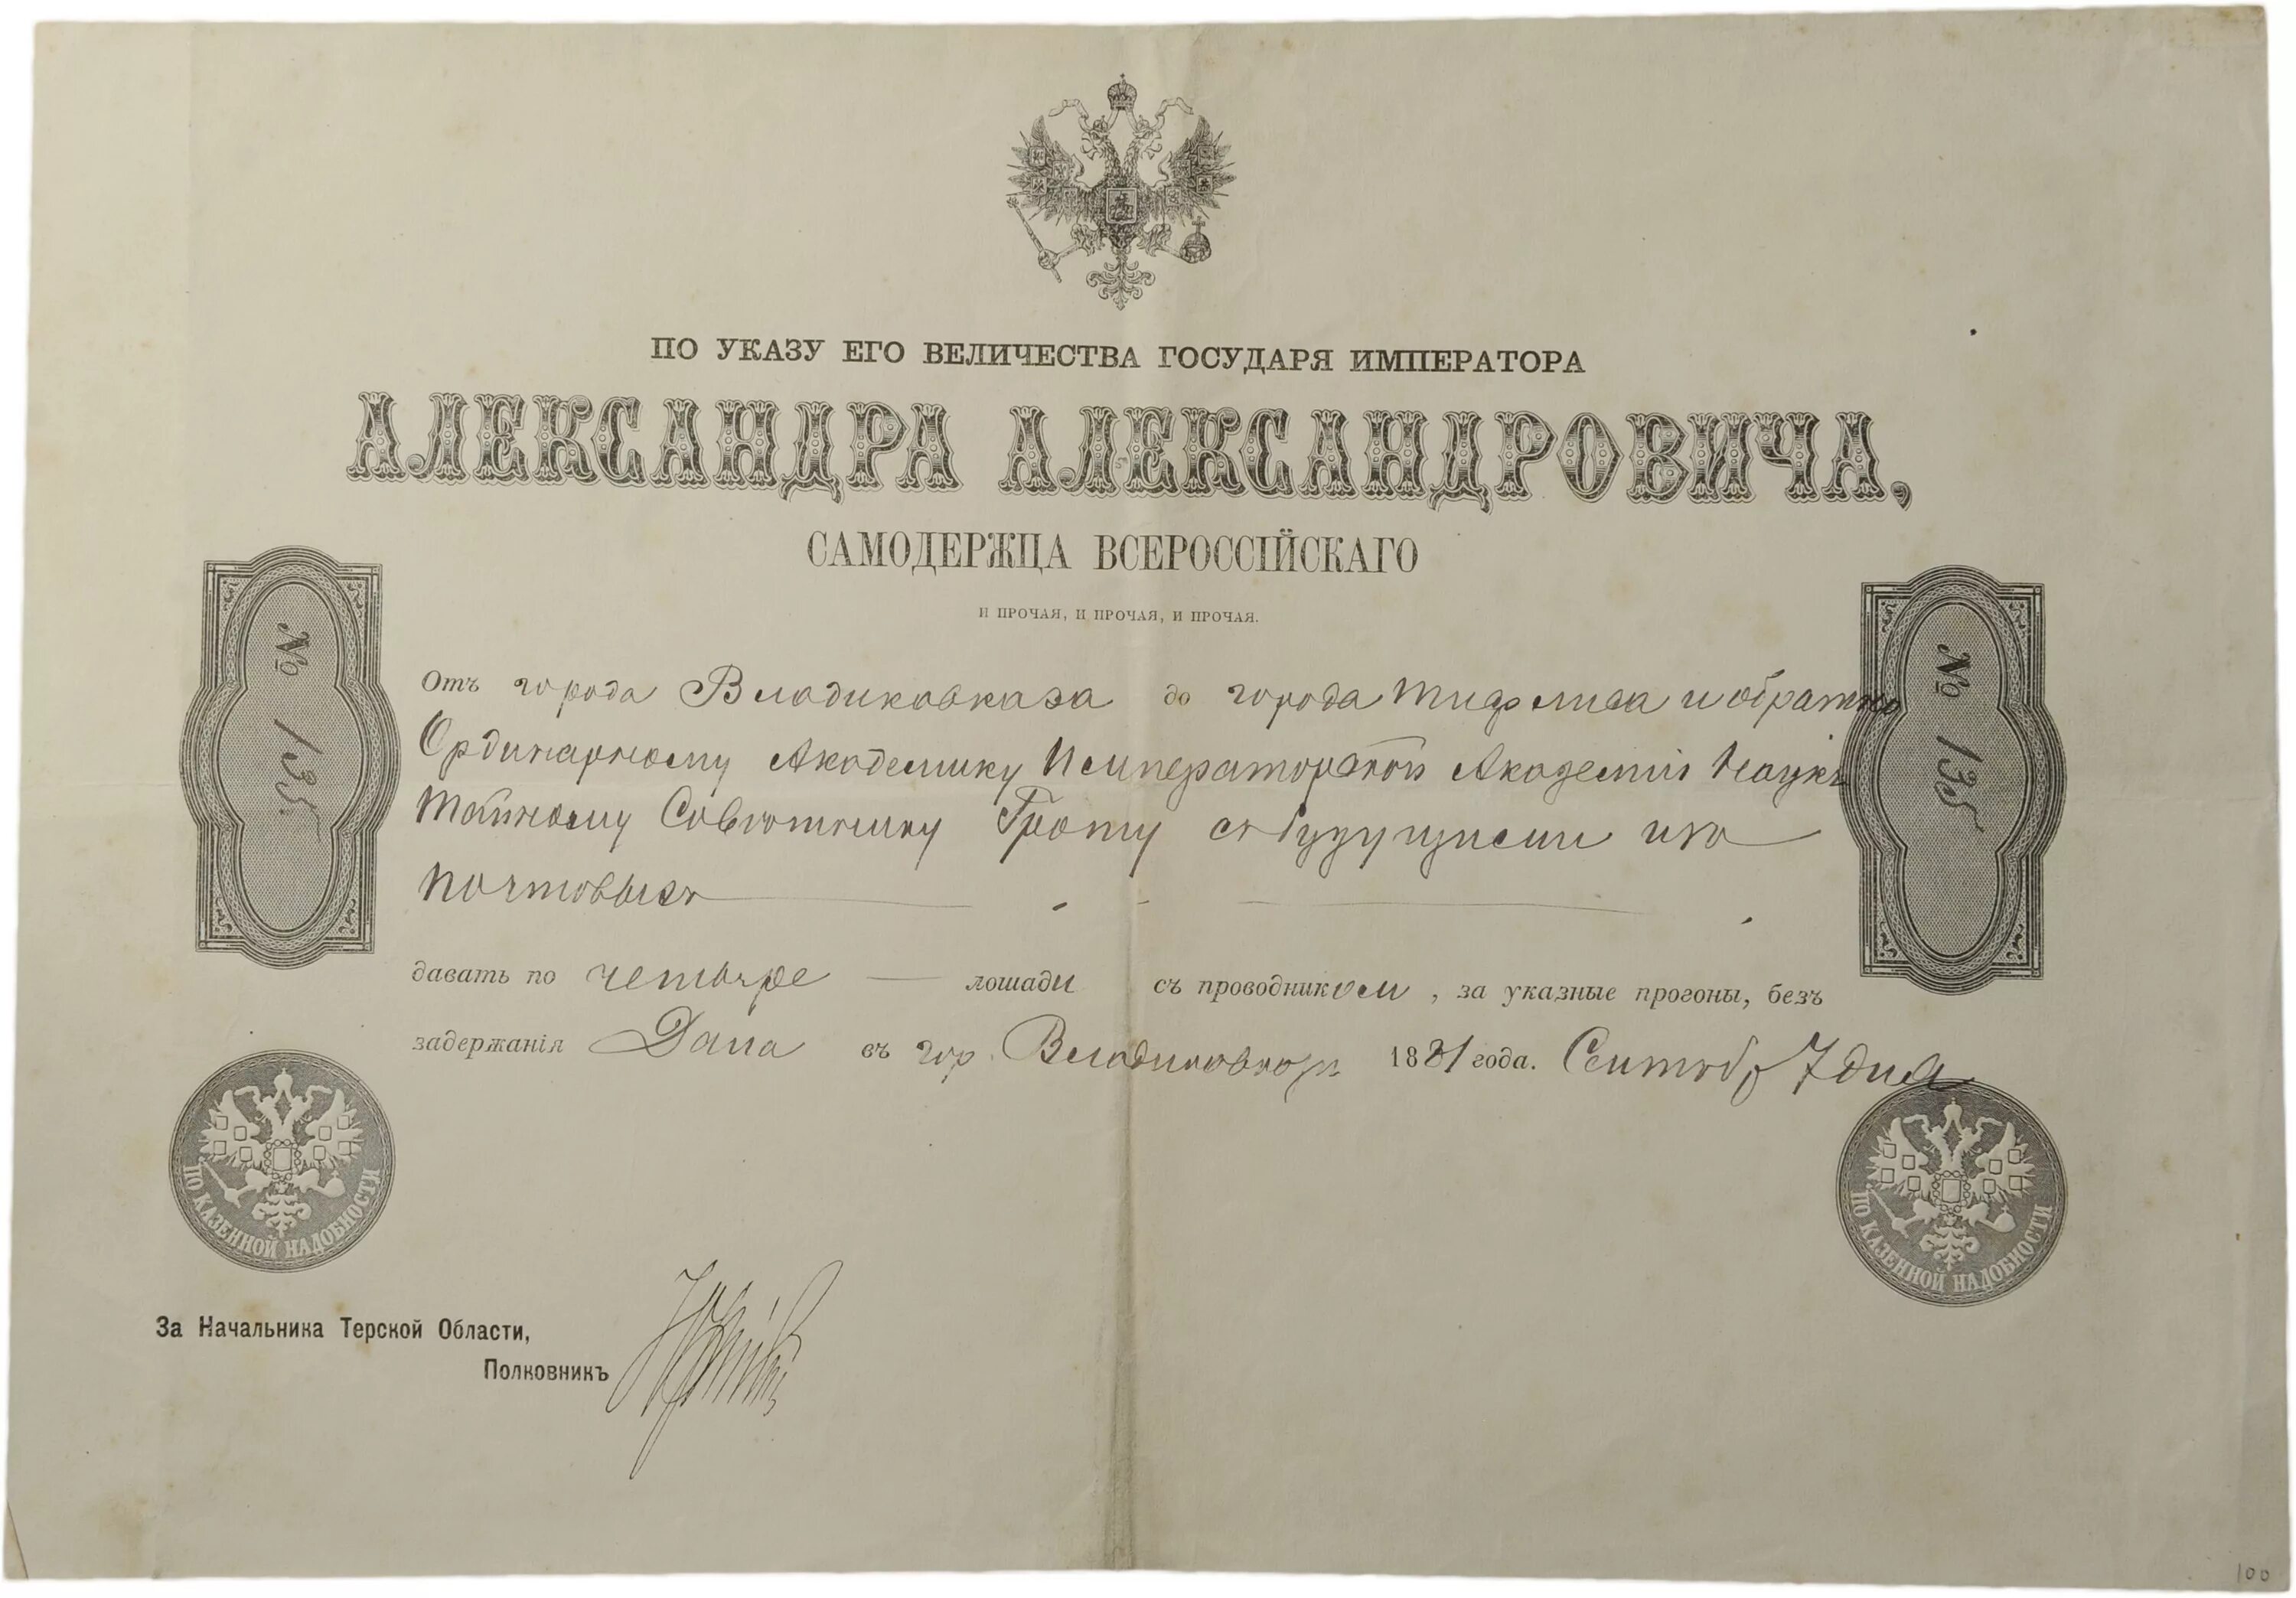 ПО УКАЗУ ЕГО ВЕЛИЧЕСТВА ГОСУДАРЯ ИМПЕРАТОРА
АЛЕКСАНДРА АЛЕКСАНДРОВИЧА,
САМОДЕРЖЦА ВСЕРОССІЙСКАГО
И ПРОЧАЯ, И ПРОЧАЯ, И ПРОЧАЯ.
№ 135
№ 135
Отъ города Владикавказа до города Тифлиса и обратно
Ординарному Академику Императорской Академіи Наукъ
Тайному Совѣтнику Гроту съ будущими изъ
почтовыхъ
давать по четыре лошади съ проводникомъ, за указные прогоны, безъ
задержанія Дана въ гор. Владикавказѣ 1881 года. Сентяб 7 дня
ПО КАЗЕННОЙ НАДОБНОСТИ
ПО КАЗЕННОЙ НАДОБНОСТИ
За Начальника Терской Области,
Полковникъ
100